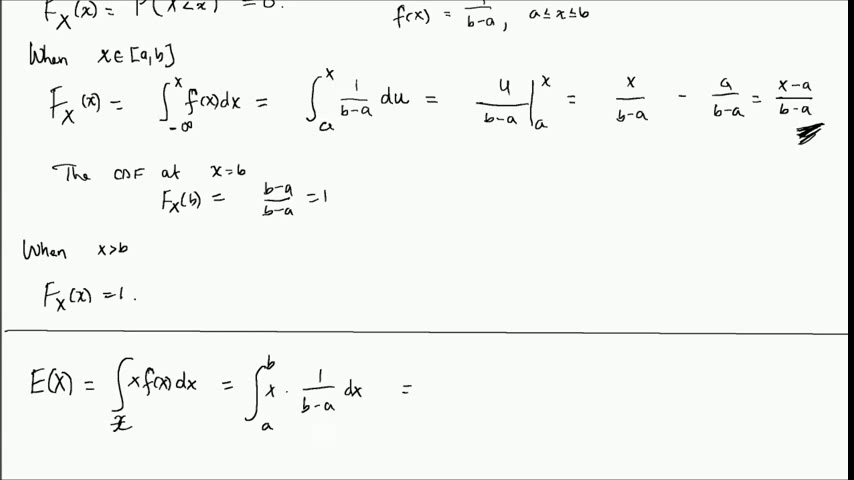 F_X(x) = P(X<x) = 0.
f(x) = 1/(b-a), a≤x≤b
When x∈[a,b]
F_X(x) = ∫_{-∞}^{x} f(x)dx = ∫_{a}^{x} 1/(b-a) du = u/(b-a) |_{a}^{x} = x/(b-a) - a/(b-a) = (x-a)/(b-a)
The CDF at x=b
F_X(b) = (b-a)/(b-a) = 1
When x>b
F_X(x) = 1.
E(X) = ∫_{𝒳} x f(x) dx = ∫_{a}^{b} x · 1/(b-a) dx =